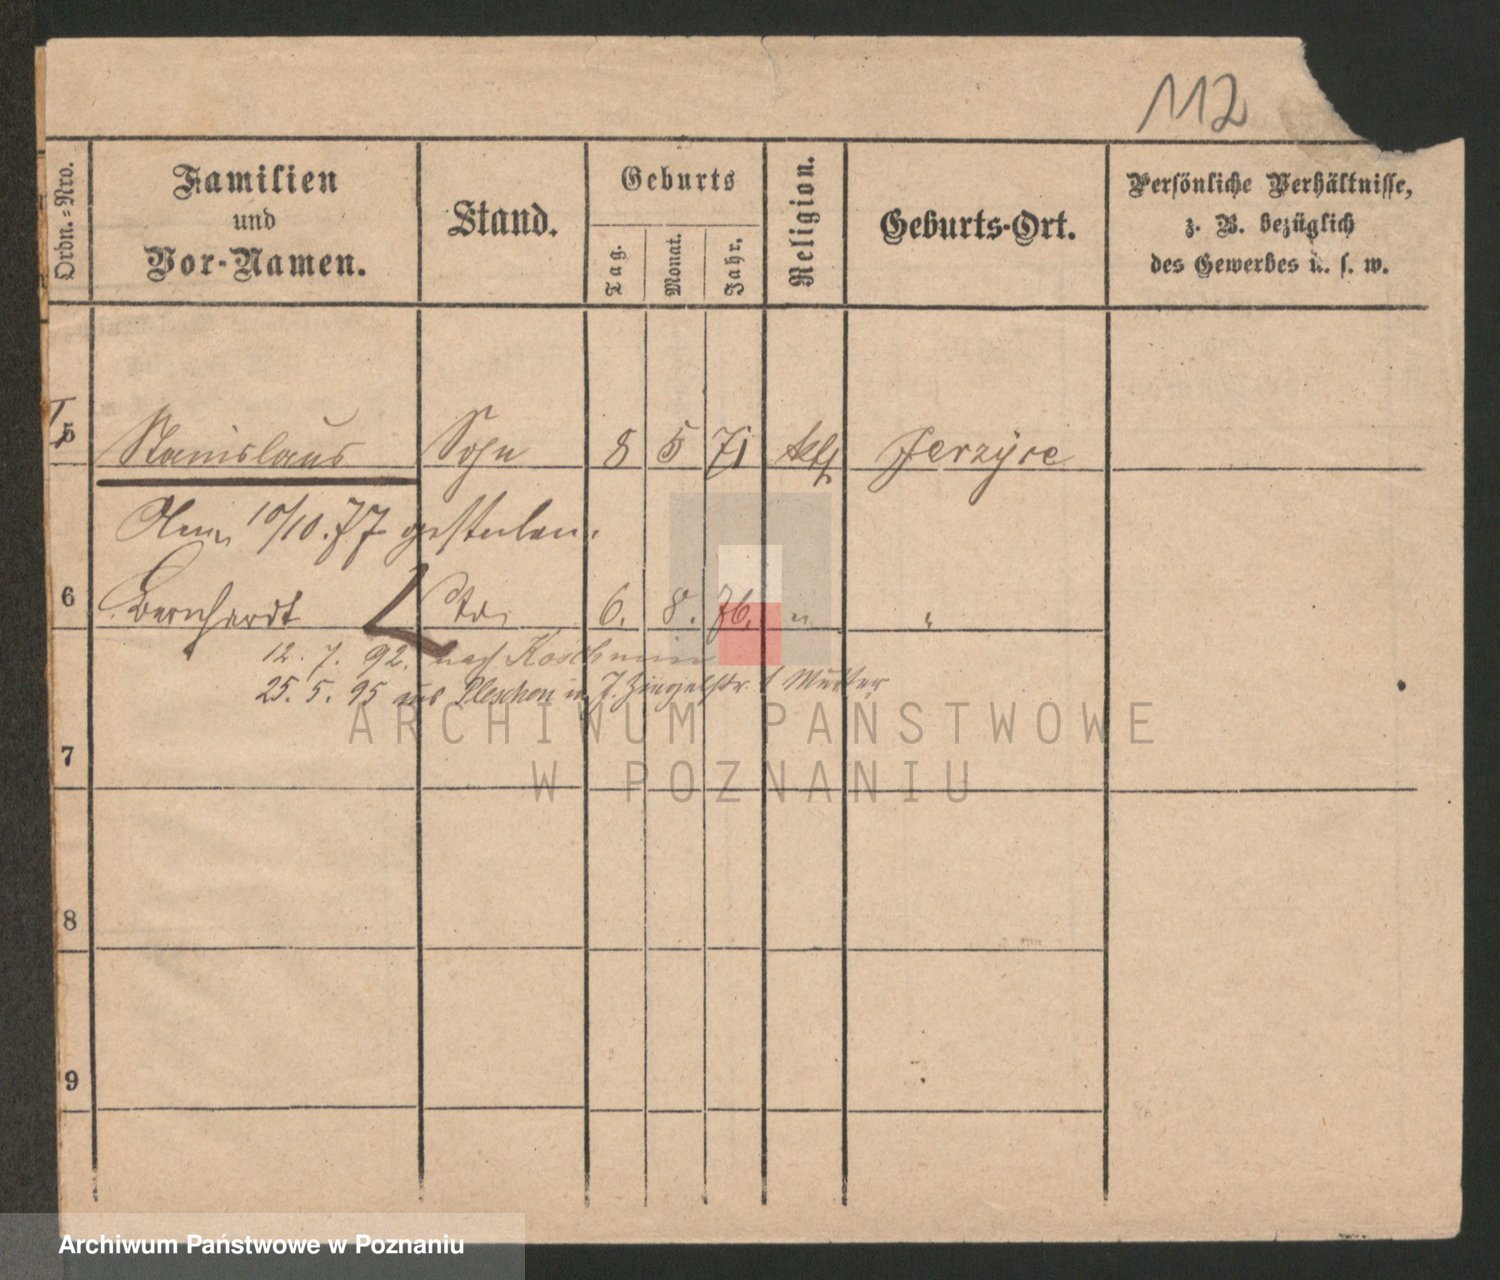 112
Ordn.=Nro.
Familien
und
Vor-Namen.
Stand.
Geburts
Tag.
Monat.
Jahr.
Religion.
Geburts-Ort.
Persönliche Verhältnisse,
z. B. bezüglich
des Gewerbes u. s. w.
5 Stanislaus Sohn 8 5 71 kth Jerzyce
10/10.77 gestorben.
6 Bernhardt do 6. 8. 76. " "
12. 7. 92. nach Koschmin
25. 5. 95 aus Pleschen in J. Ziegelstr. Mutter
7
8
9
ARCHIWUM PAŃSTWOWE
W POZNANIU
Archiwum Państwowe w Poznaniu